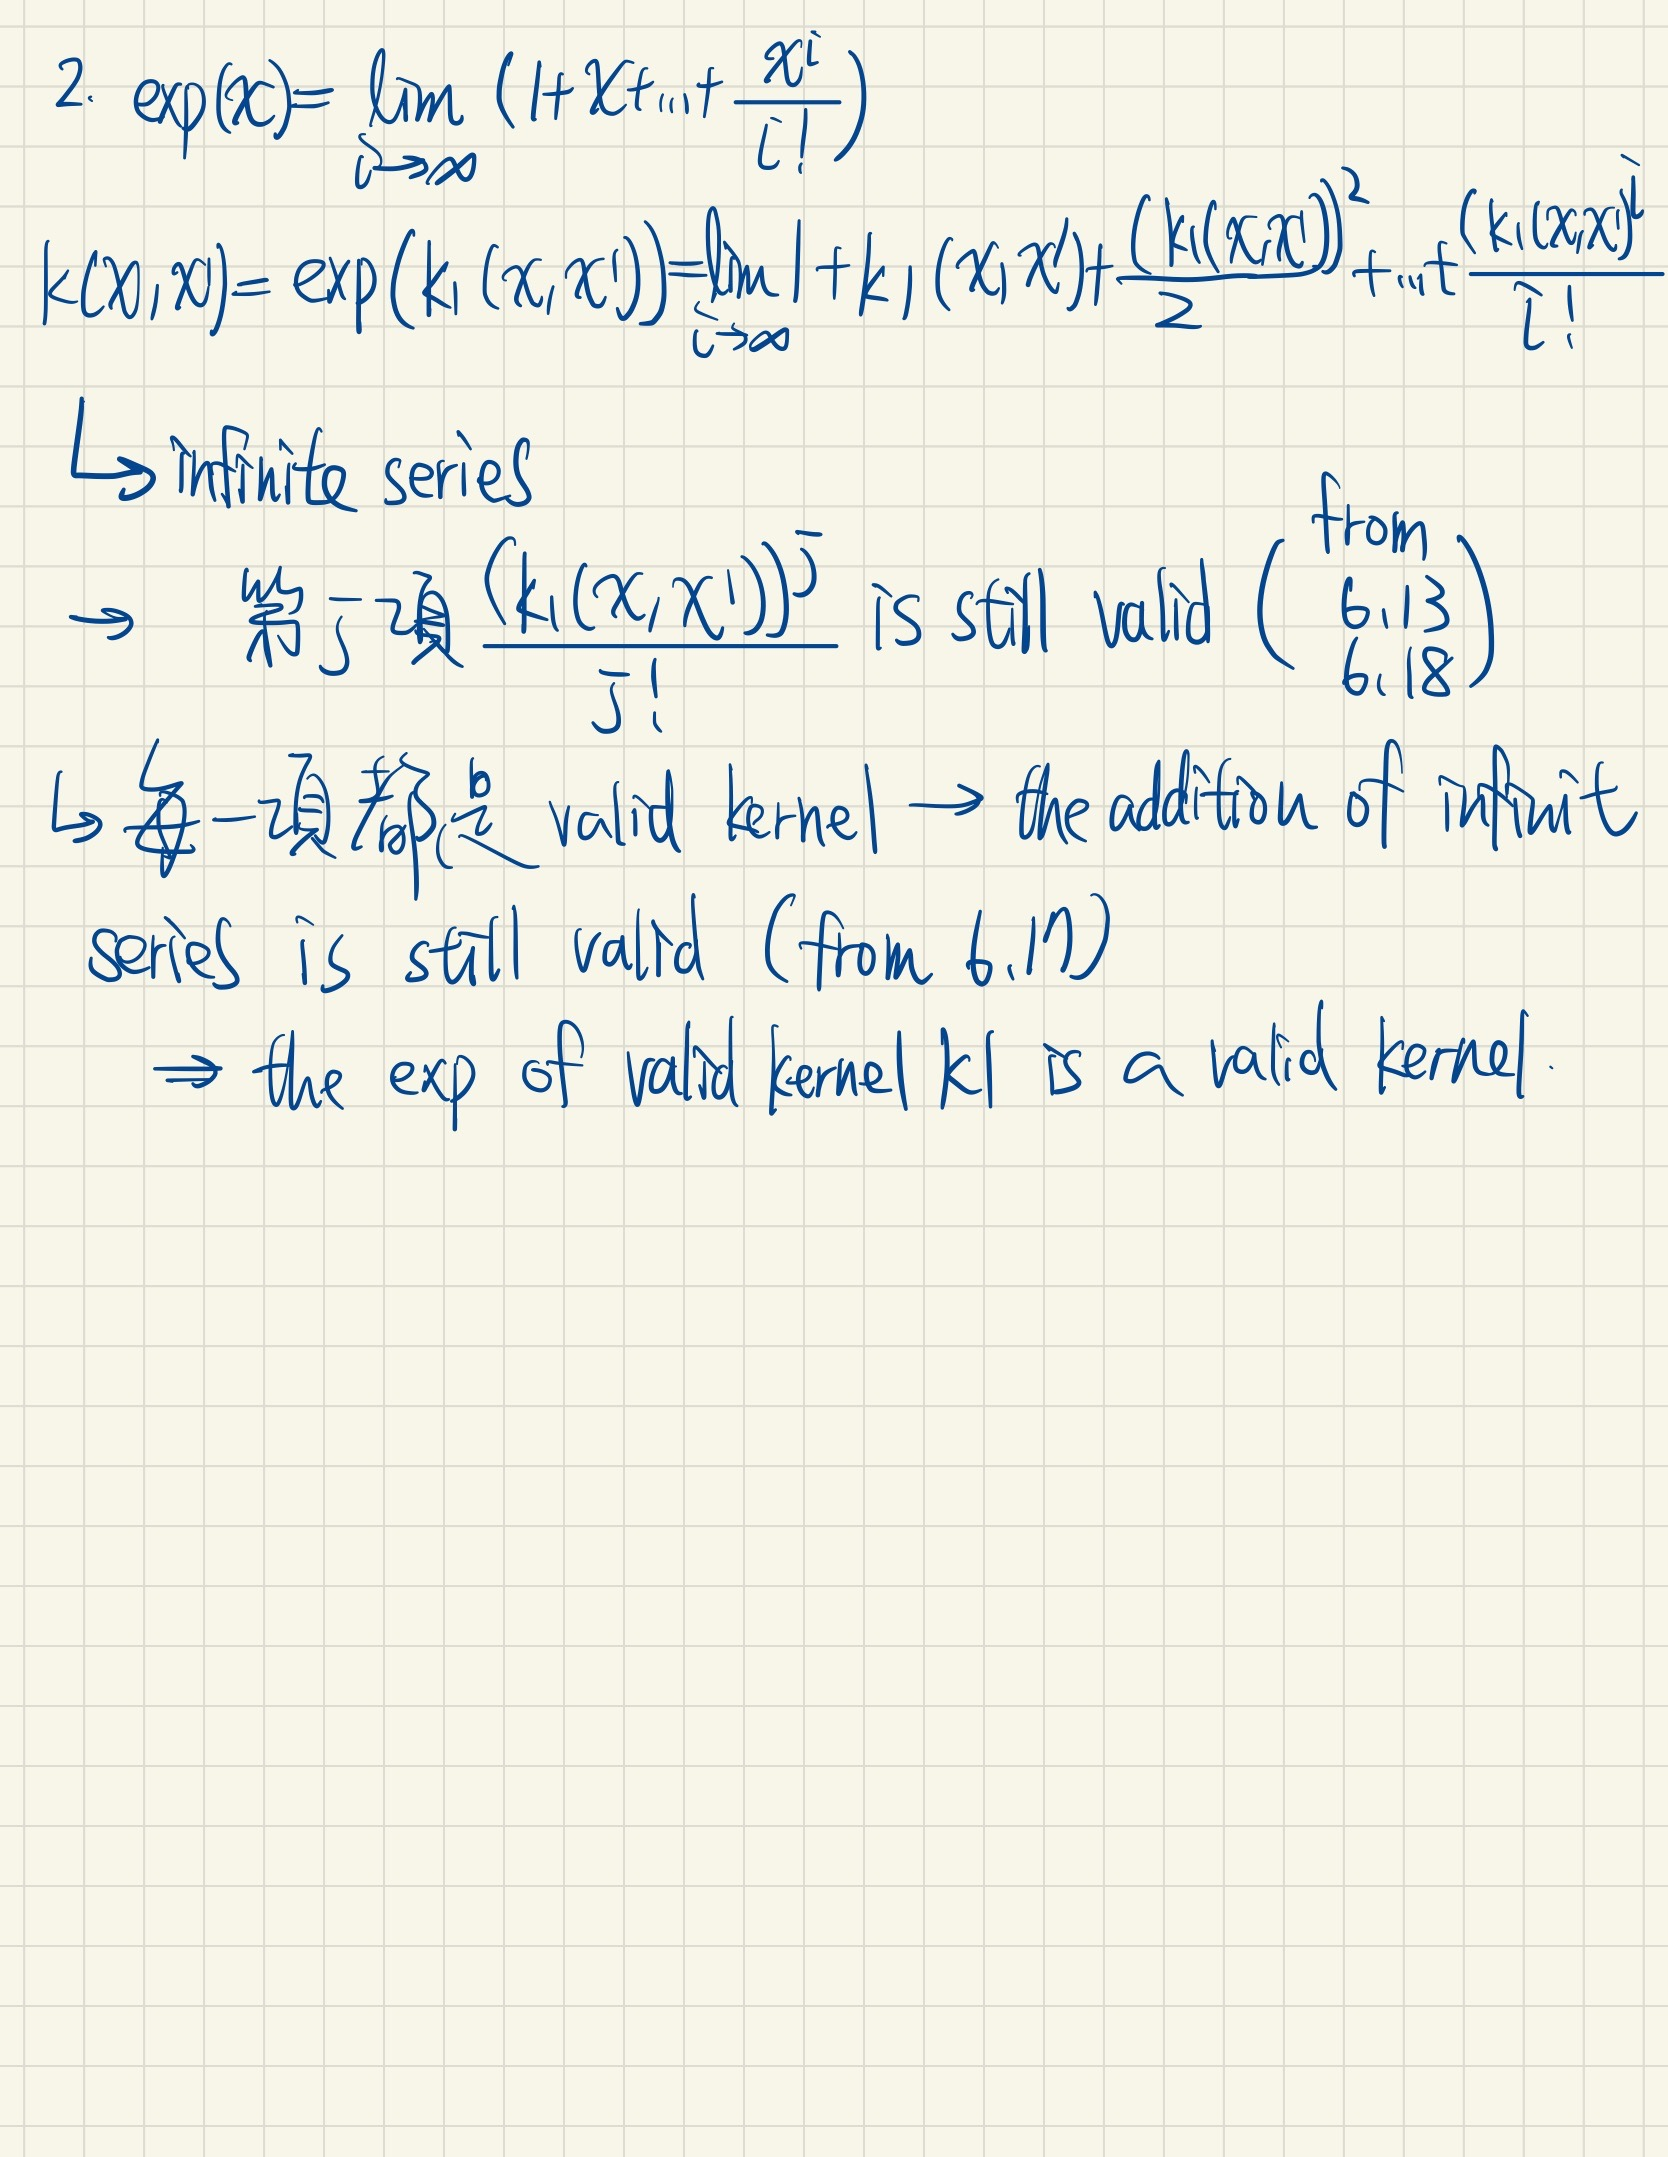 2. exp(x) = lim_{i→∞} (1+x+...+ x^i / i!)
k(x,x') = exp(k₁(x,x')) = lim_{i→∞} 1 + k₁(x,x') + (k₁(x,x'))² / 2 + ... + (k₁(x,x'))^i / i!
↳ infinite series
→ 第 j 項 (k₁(x,x'))^j / j! is still valid (from 6.13 6.18)
↳ 每一項都是 valid kernel → the addition of infinit
series is still valid (from 6.17)
⇒ the exp of valid kernel k1 is a valid kernel.